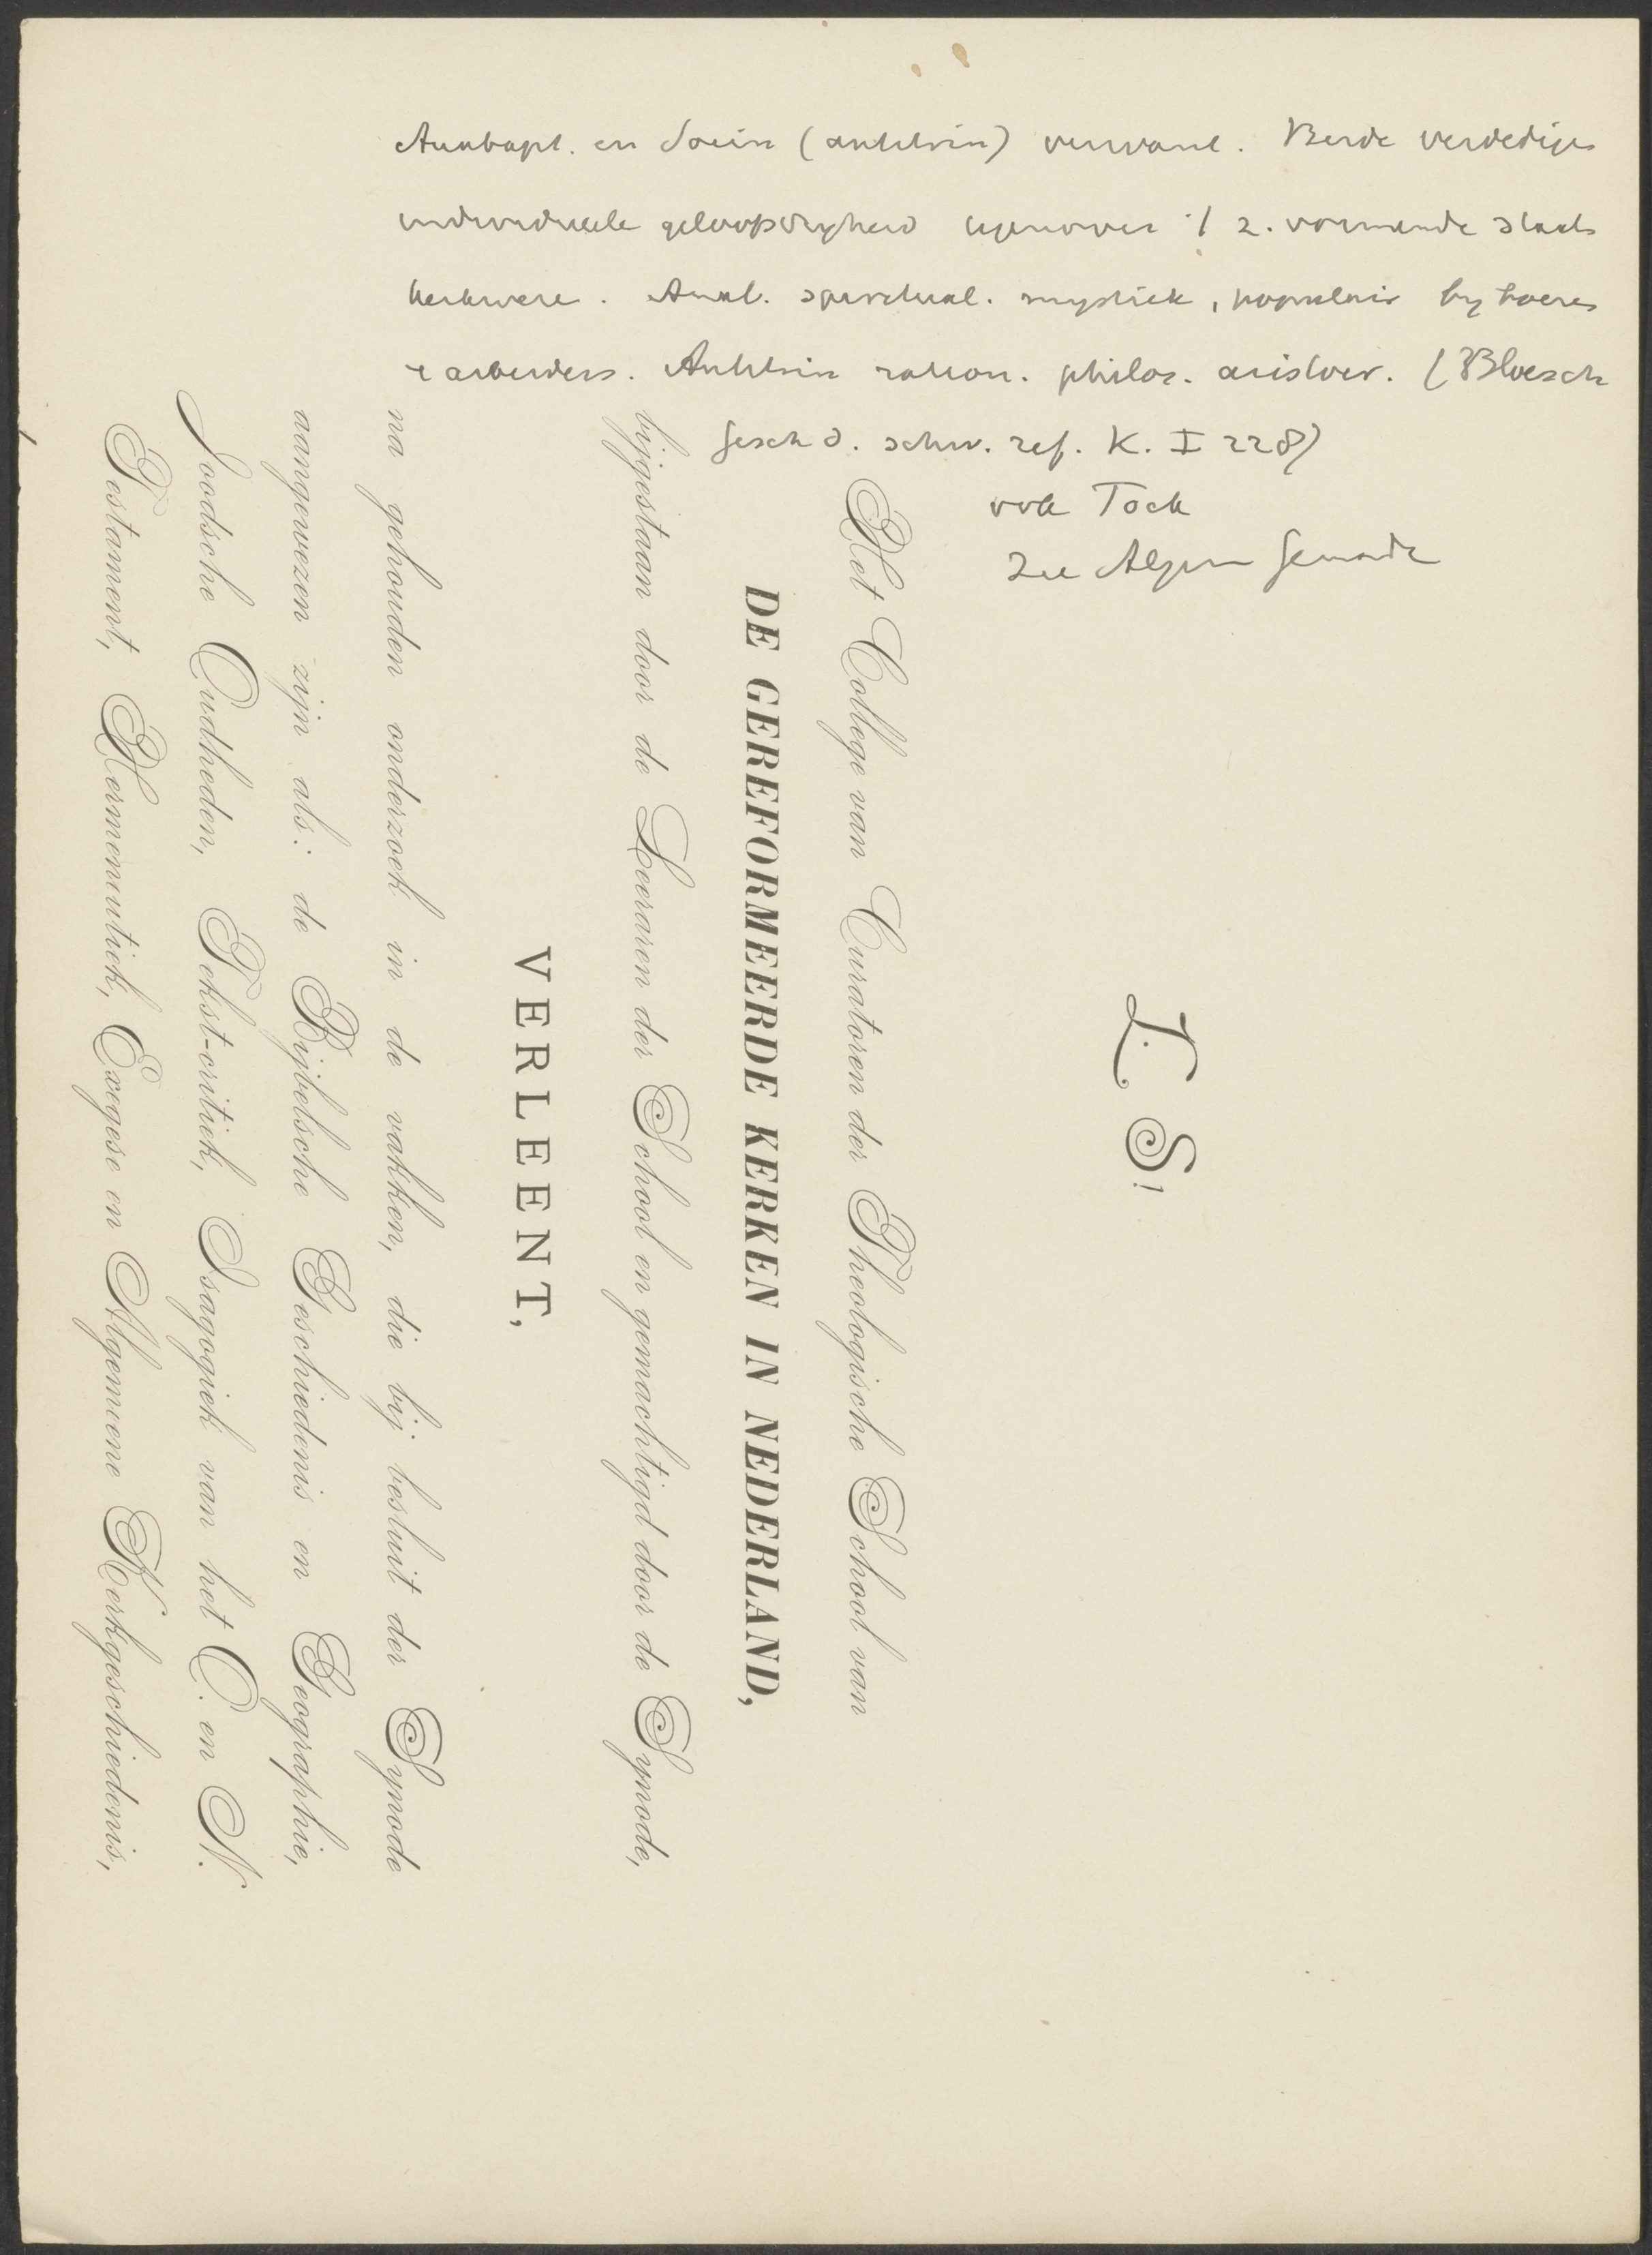 Anabapt. en Socin (antitrin) verwant. Beide verdedigen
individueele geloofsvryheid tegenover 't z. vormende staats
kerkwere. Anab. spiritual. mystiek, populair by boeren
e arbeiders. Antitrin ration. philos. aristocr. (Bloesch
Gesch d. schw. ref. K. I 228)
ook Tock
zie Algem Genade
L. S!
Het College van Curatoren der Theologische School van
DE GEREFORMEERDE KERKEN IN NEDERLAND,
bijgestaan door de Leeraren der School en gemachtigd door de Synode,
VERLEENT,
na gehouden onderzoek in de vakken, die bij besluit der Synode
aangewezen zijn als: de Bijbelsche Geschiedenis en Geographie,
Joodsche Oudheden, Tekst-critiek, Isagogiek van het O. en N.
Testament, Hermeneutiek, Exegese en Algemeene Kerkgeschiedenis,